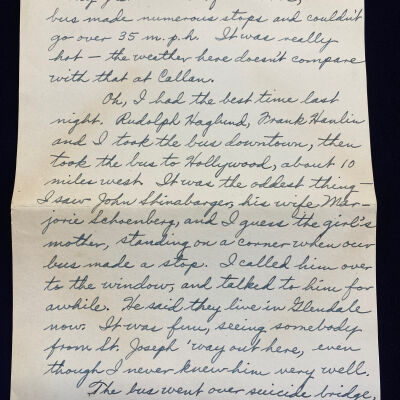 bus made numerous stops and couldn't
go over 35 m.p.h. It was really
hot — the weather here doesn't compare
with that at Callan.
Oh, I had the best time last
night. Rudolph Haglund, Frank Hanlin
and I took the bus downtown, then
took the bus to Hollywood, about 10
miles west. It was the oddest thing —
I saw John Shinabarger, his wife Mar-
jorie Schoenberg, and I guess the girl's
mother, standing on a corner when our
bus made a stop. I called him over
to the window, and talked to him for
awhile. He said they live in Glendale
now. It was fun, seeing somebody
from St. Joseph 'way out here, even
though I never knew him very well.
The bus went over suicide bridge,